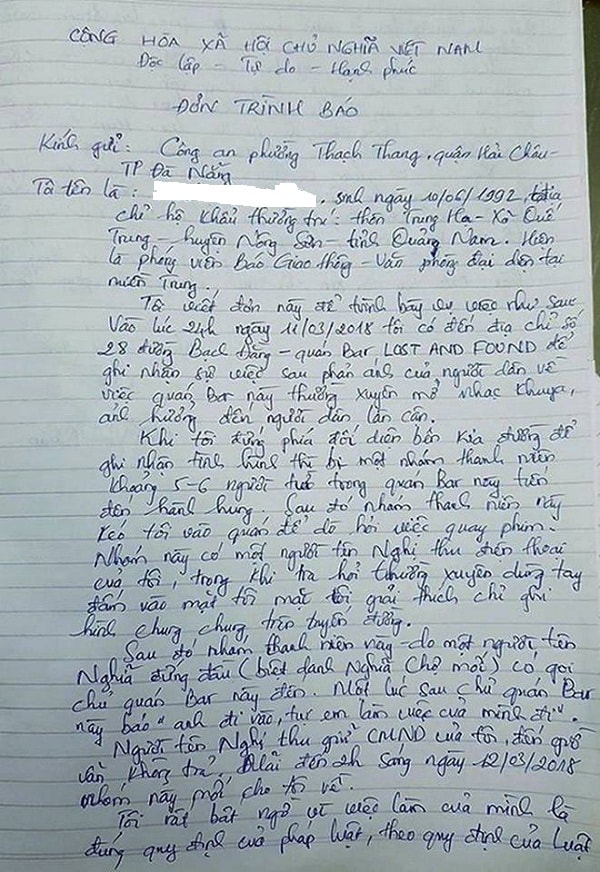 CÔNG HÒA XÃ HỘI CHỦ NGHĨA VIỆT NAM
Độc lập - Tự do - Hạnh phúc
ĐƠN TRÌNH BÁO
Kính gửi: Công an phường Thạch Thang, quận Hải Châu -
TP Đà Nẵng
Tôi tên là: , sinh ngày 10/06/1992,
chỉ hộ khẩu thường trú: thôn Trung Hạ - Xã Quế
Trung - huyện Nông Sơn - tỉnh Quảng Nam. Hiện
là phóng viên Báo Giao thông - Văn phòng đại diện tại
miền Trung.
Tôi viết đơn này để trình bày sự việc như sau:
Vào lúc 24h ngày 11/03/2018 tôi có đến địa chỉ số
28 đường Bạch Đằng - quán Bar, LOST AND FOUND để
ghi nhận sự việc sau phản ánh của người dân về
việc quán Bar này thường xuyên mở nhạc khuya,
ảnh hưởng đến người dân lân cận.
Khi tôi đứng phía đối diện bên kia đường để
ghi nhận tình hình thì bị một nhóm thanh niên
khoảng 5-6 người từ trong quán Bar này tiến
đến hành hung. Sau đó nhóm thanh niên này
kéo tôi vào quán để dò hỏi việc quay phim.
Nhóm này có một người tên Nghị thu điện thoại
của tôi, trong khi tra hỏi thường xuyên dùng tay
đấm vào mặt tôi mặc tôi giải thích chỉ ghi
hình chung chung, trên tuyến đường.
Sau đó nhóm thanh niên này - do một người tên
Nghĩa đứng đầu (biệt danh Nghĩa Chợ mới) có gọi
chủ quán Bar này đến. Một lúc sau chủ quán Bar
này bảo "anh đi vào, tụi em làm việc của mình đi".
Người tên Nghị thu giữ CMND của tôi, đến giờ
vẫn không trả. Mãi đến 2h sáng ngày 12/03/2018
nhóm này mới cho tôi về.
Tôi rất bất ngờ vì việc làm của mình là
đúng quy định của pháp luật, theo quy định của Luật